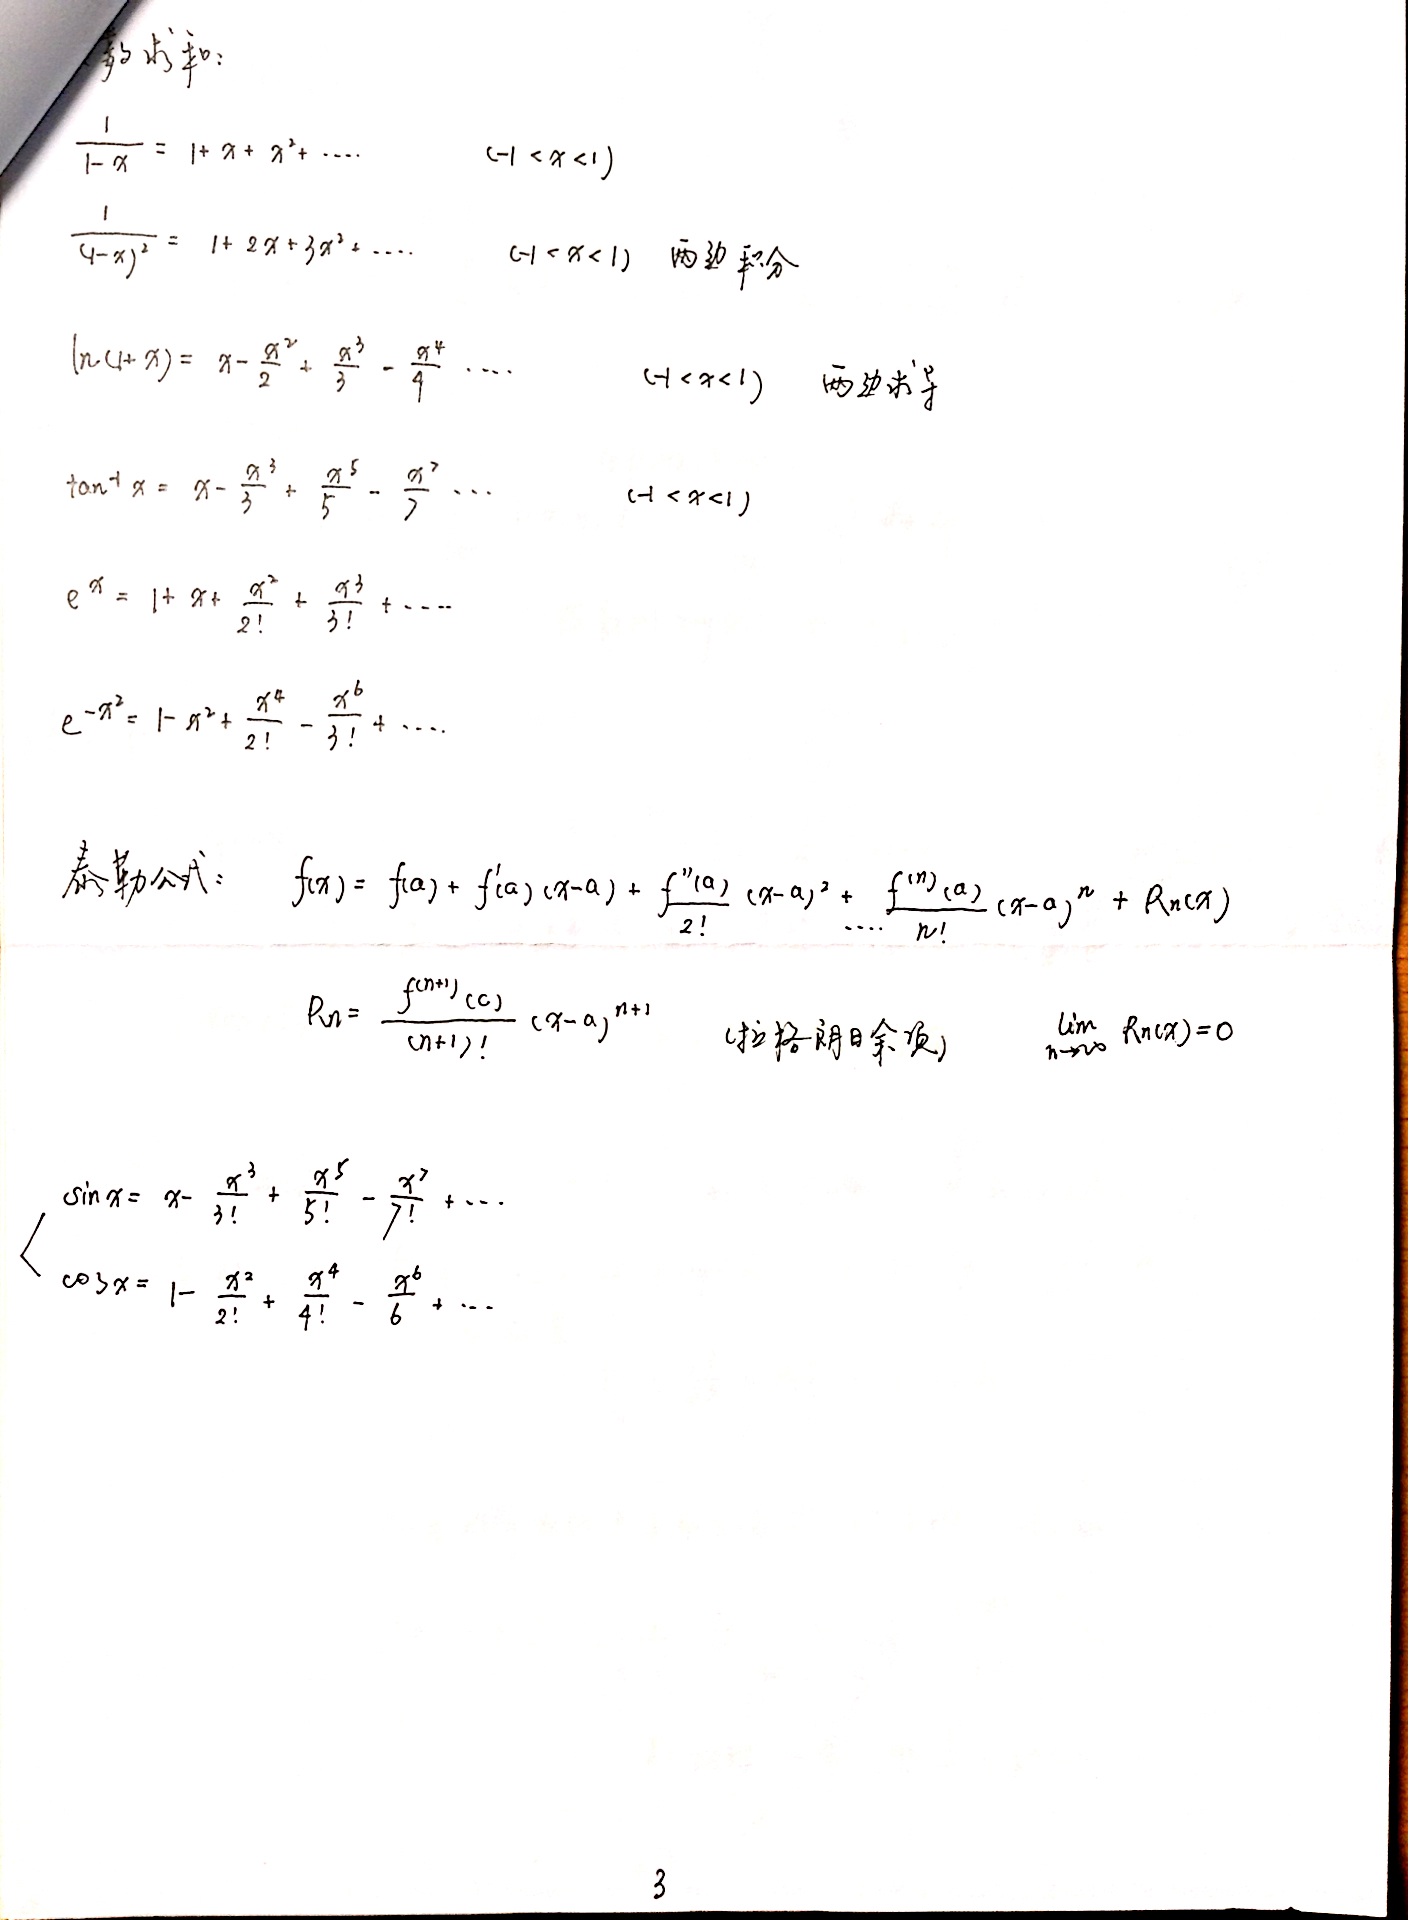 数求和:
1/(1-x) = 1+x+x²+.... (-1<x<1)
1/(1-x)² = 1+2x+3x²+.... (-1<x<1) 两边积分
ln(1+x) = x - x²/2 + x³/3 - x⁴/4 .... (-1<x<1) 两边求导
tan⁻¹x = x - x³/3 + x⁵/5 - x⁷/7 ... (-1<x<1)
eˣ = 1+x+ x²/2! + x³/3! + ....
e^(-x²) = 1-x²+ x⁴/2! - x⁶/3! + ....
泰勒公式: f(x) = f(a) + f'(a)(x-a) + f''(a)/2! (x-a)² + .... f⁽ⁿ⁾(a)/n! (x-a)ⁿ + Rn(x)
Rn = f⁽ⁿ⁺¹⁾(c)/(n+1)! (x-a)ⁿ⁺¹ (拉格朗日余项) lim n→∞ Rn(x)=0
sinx = x - x³/3! + x⁵/5! - x⁷/7! + ...
cosx = 1 - x²/2! + x⁴/4! - x⁶/6 + ...
3